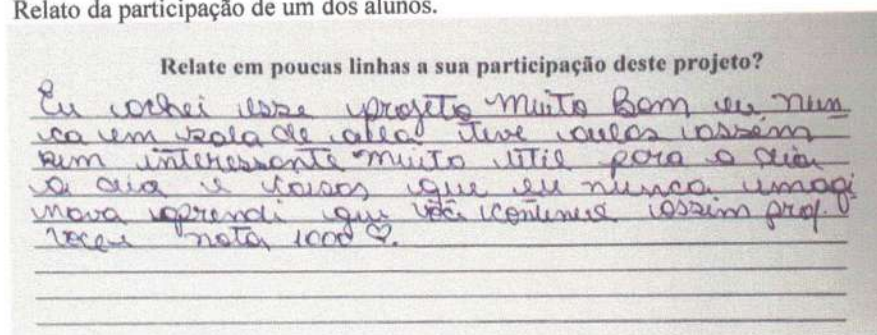 Relato da participação de um dos alunos.
Relate em poucas linhas a sua participação deste projeto?
Eu achei esse projeto muito Bom eu nun
ca em sala de aula tive aulas assim
sim interessante muito útil para o dia
a dia e coisas que eu nunca imagi
nava aprendi que você continue assim prof.
você nota 1000 ♡.